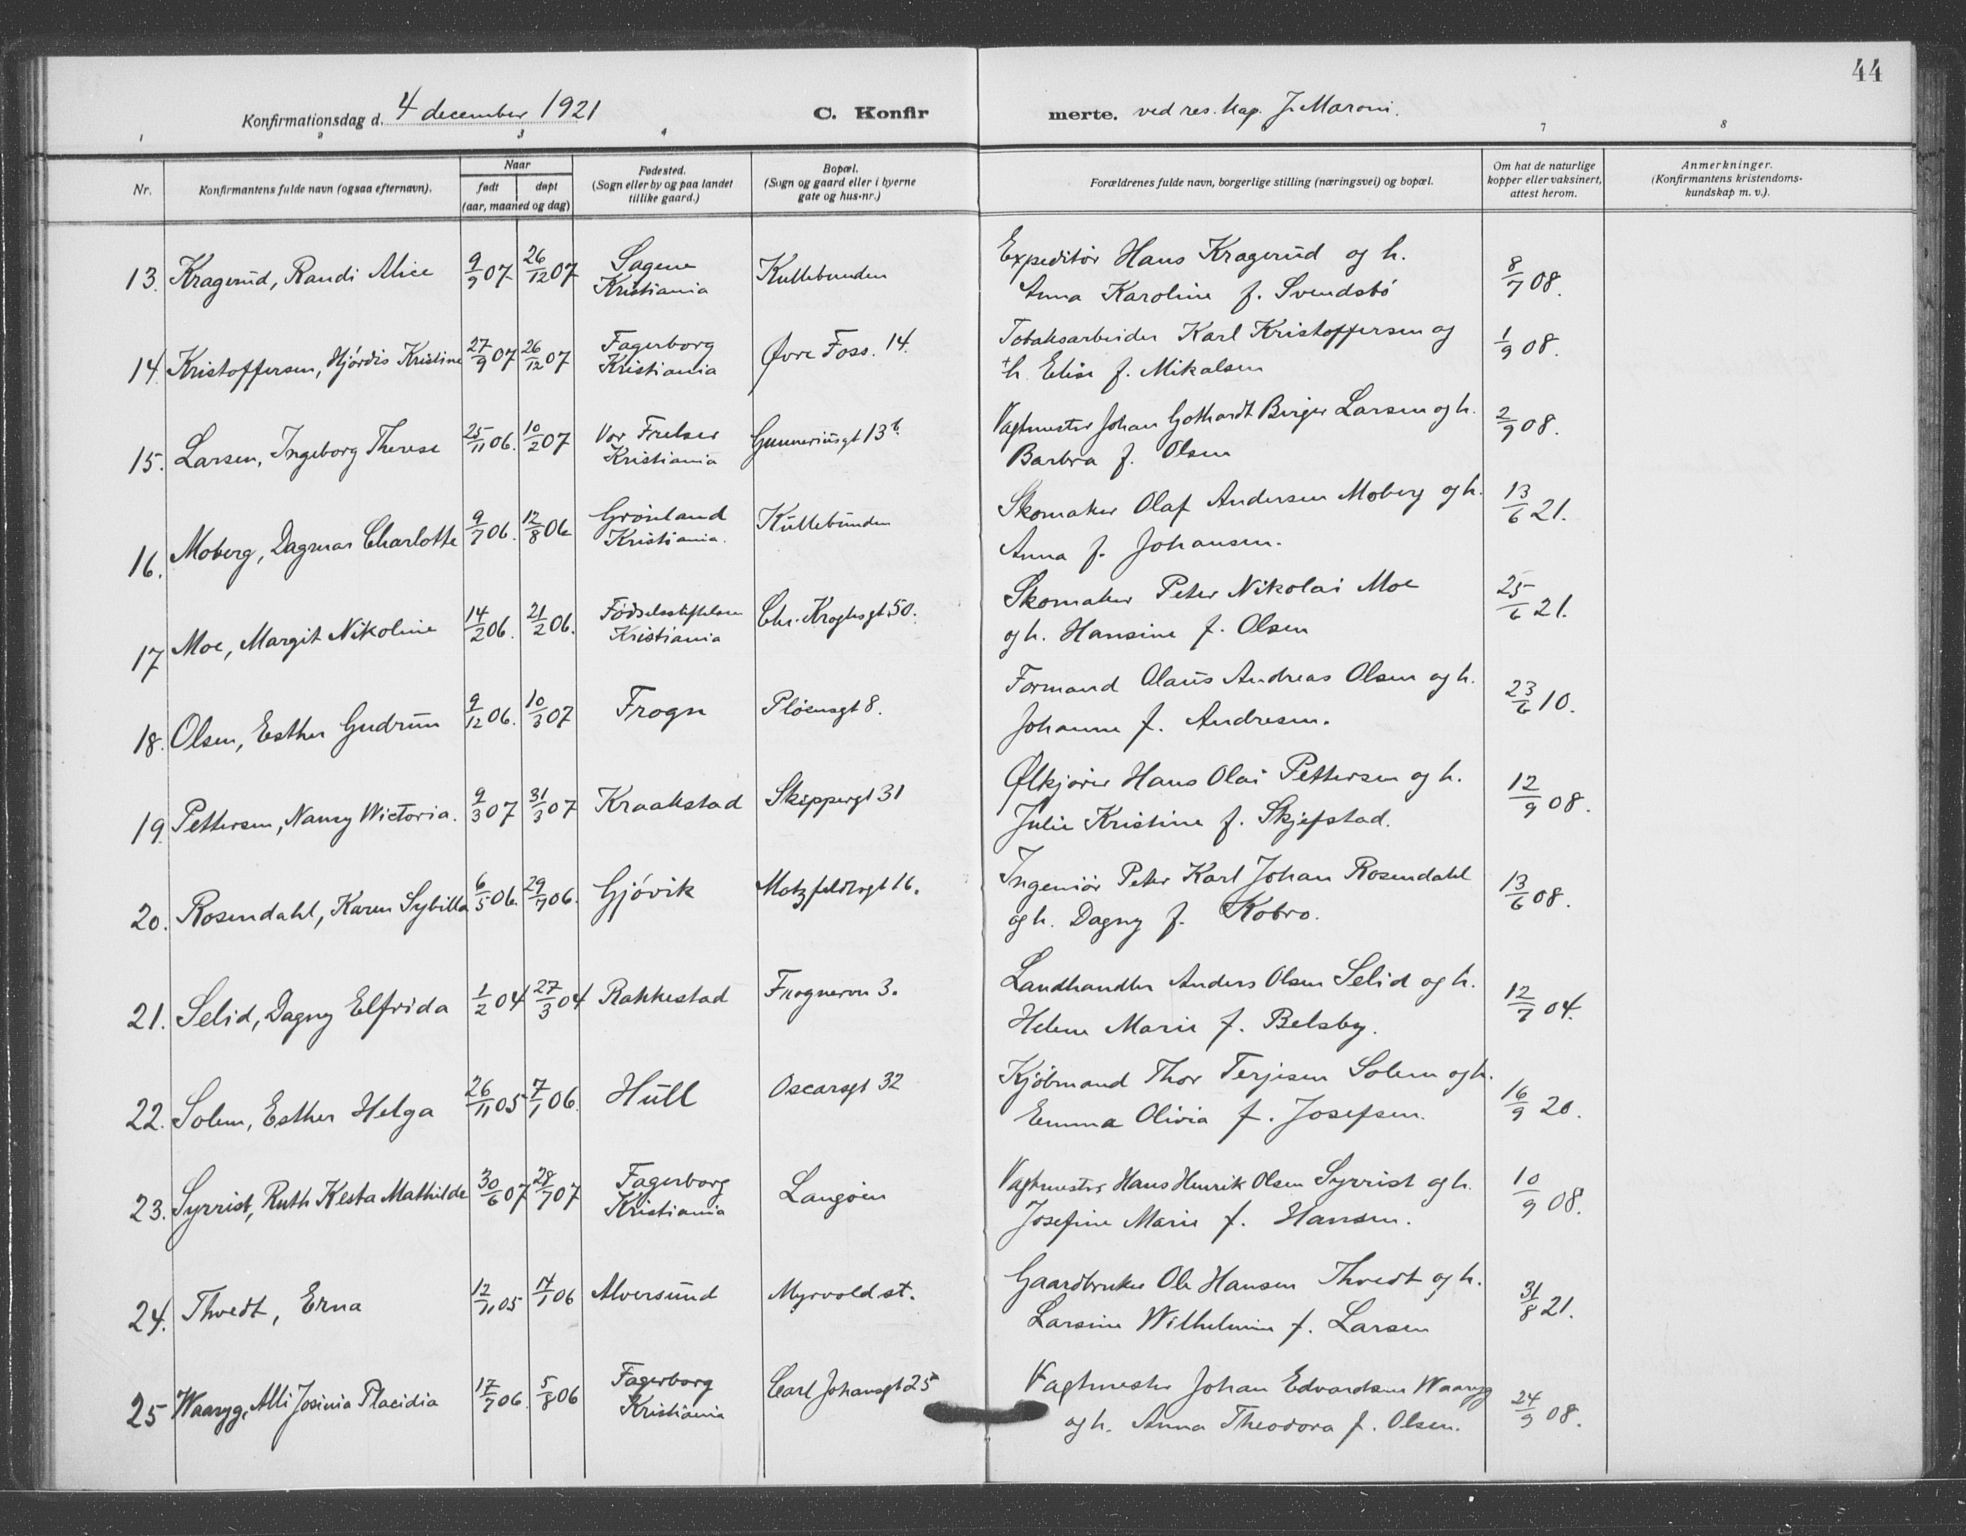 44
Konfirmationsdag d. 4 december 1921 C. Konfirmerte. ved res. kap. J. Maroni.
1 2 3 4 7 8
Nr. Konfirmantens fulde navn (ogsaa efternavn). Naar født døpt (aar, maaned og dag) Fødested. (Sogn eller by og paa landet tillike gaard.) Bopæl. (Sogn og gaard eller i byerne gate og hus-nr.) Forældrenes fulde navn, borgerlige stilling (næringsvei) og bopæl. Om hat de naturlige kopper eller vaksinert, attest herom. Anmerkninger. (Konfirmantens kristendomskundskap m. v.).
13. Kragerud, Randi Alice 9/9 07. 26/12 07 Sagene Kristiania Kullebunden Expeditør Hans Kragerud og h. Anna Karoline f. Svendsbö 8/7 08.
14. Kristoffersen, Hjördis Kristine 27/9 07 26/12 07 Fagerborg Kristiania Øvre Foss. 14. Tobaksarbeider Karl Kristoffersen og + h. Elise f. Mikalsen 1/9 08.
15. Larsen, Ingeborg Therese 25/11 06. 10/2 07 Vor Frelser Kristiania Gunneriusgt 13 b. Vagtmester Johan Gothardt Birger Larsen og h. Barbra f. Olsen 2/9 08.
16. Moberg, Dagmar Charlotte 9/7 06. 12/8 06 Grönland Kristiania. Kullebunden Skomaker Olaf Andersen Moberg og h. Anna f. Johansen. 13/6 21.
17 Moe, Margit Nikoline 14/2 06. 21/2 06. Födselsstiftelsen Kristiania Chr. Kroghsgt 50. Skomaker Peter Nikolai Moe og h. Hansine f. Olsen 25/6 21.
18. Olsen, Esther Gudrun 9/12 06. 10/3 07 Frogn Plöensgt 8. Formand Olaus Andreas Olsen og h. Johanne f. Andresen. 23/6 10.
19. Pettersen, Nancy Wictoria. 9/3 07 31/3 07 Kraakstad Skippergt 31 Ølkjörer Hans Olai Pettersen og h. Julie Kristine f. Skjefstad. 12/9 08.
20. Rosendahl, Karen Sybilla 6/5 06. 29/7 06. Gjövik Motzfeldtsgt 16. Ingeniör Peter Karl Johan Rosendahl og h. Dagny f. Kobro. 13/6 08.
21. Selid, Dagny Elfrida 1/2 04 27/3 04 Rakkestad Frognervn 3. Landhandler Anders Olsen Selid og h. Helene Marie f. Belsby. 12/7 04.
22. Solem, Esther Helga 26/11 05 7/1 06. Hull Oscarsgt 32 Kjöbmand Thor Terjesen Solem og h. Emma Olivia f. Josefsen. 16/9 20.
23. Syrrist, Ruth Kesta Mathilde 30/6 07 28/7 07 Fagerborg Kristiania Langöien Vagtmester Hans Henrik Olsen Syrrist og h. Josefine Marie f. Hansen. 10/9 08.
24. Thvedt, Erna 12/11 05 7/1 06 Alversund Myrvold st. Gaardbruker Ole Hansen Thvedt og h. Larsine Wilhelmine f. Larsen 31/8 21.
25 Waaryg, Alli Josinia Placidia 17/7 06. 5/8 06 Fagerborg Kristiania Carl Johansgt 25 Vagtmester Johan Edvardsen Waaryg og h. Anna Theodora f. Olsen. 24/9 08.